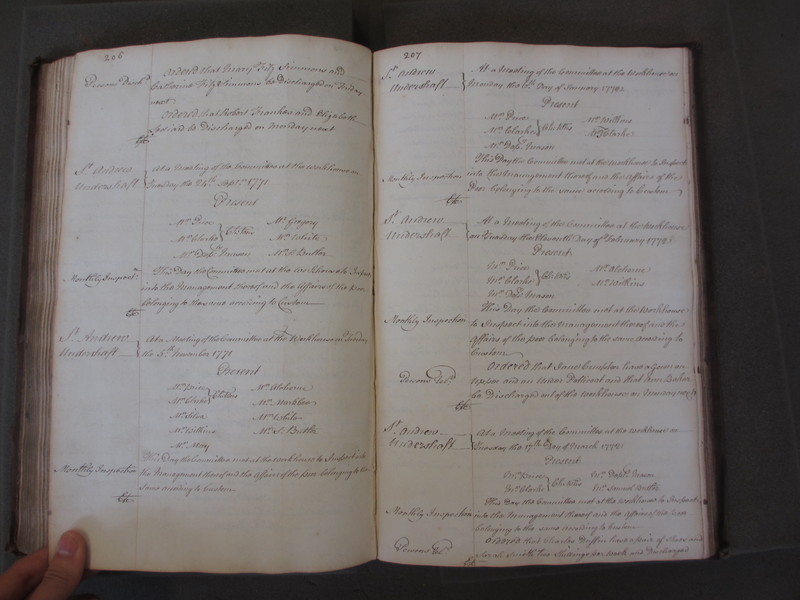 206
Ordered that Mary Fitz Simmons and
Catherine Fitz Simmons be Discharged on Friday
next
Ordered that Robert Franker and Elizabeth
be Discharged on Monday next
St. Andrew
Undershaft
At a Meeting of the Committee at the Workhouse on
Tuesday the 24th Septr. 1771
Present
Mr. Price
Mr. Clarke
Mr. Depty. Mason
Mr. Gregory
Mr. White
Mr. S. Butler
Monthly Inspectn.
This Day the Committee met at the Workhouse to Inspect
into the Management thereof and the Affairs of the poor
belonging to the same according to Custom
St. Andrew
Undershaft
At a Meeting of the Committee at the Workhouse on Tuesday
the 5th. November 1771
Present
Mr. Price
Mr. Clarke
Mr. Silva
Mr. Wilkins
Mr. May
Mr. Alsharne
Mr. White
Mr. S. Butler
Monthly Inspection
This Day the Committee met at the workhouse to Inspect into
the Management thereof and the Affairs of the poor belonging to the
same according to Custom
207
St. Andrew
Undershaft
At a Meeting of the Committee at the Workhouse on
Day of January 1772
Present
Mr. Price
Mr. Clarke
Mr. Depty. Mason
Mr. Wilkins
Mr. Clarke
Monthly Inspection
This Day the Committee met at the Workhouse to Inspect
into the Management thereof and the Affairs of the
Poor belonging to the same according to Custom
St. Andrew
Undershaft
At a Meeting of the Committee at the Workhouse
on Tuesday the Eleventh Day of February 1772
Present
Mr. Price
Mr. Clarke
Mr. Depty. Mason
Mr. Alsharne
Mr. Wilkins
Monthly Inspection
This Day the Committee met at the Workhouse
to Inspect into the Management thereof and the
Affairs of the poor belonging to the same according to
Custom
Ordered that Jane Crumpton have a Gown an
Apron and an Under Petticoat and that Ann Baker
be Discharged out of the Workhouse on Monday next
St. Andrew
Undershaft
At a Meeting of the Committee at the Workhouse on
Tuesday the 17th Day of March 1772
Present
Mr. Price
Mr. Clarke
Mr. Depty. Mason
Mr. Samuel Butler
Monthly Inspection
This Day the Committee met at the Workhouse to Inspect
into the Management thereof and the Affairs of the poor
belonging to the same according to Custom
Ordered that Charles Griffin have a pair of Shoes and
Sarah Smith two Shillings per Week and Discharged